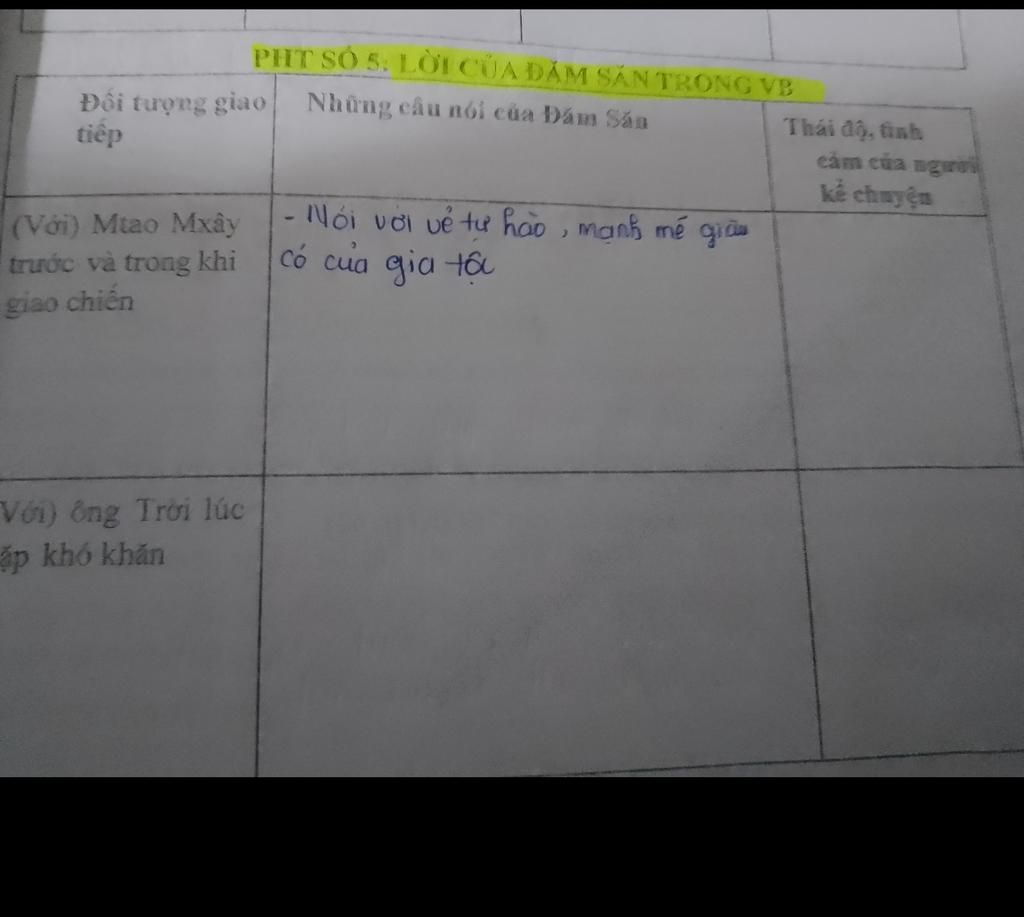 PHT SỐ 5: LỜI CỦA ĐĂM SĂN TRONG VB
Đối tượng giao
tiếp
Những câu nói của Đăm Săn
Thái độ, tình
cảm của người
kể chuyện
(Với) Mtao Mxây
trước và trong khi
giao chiến
- Nói với vẻ tự hào, mạnh mẽ giàu
có của gia tộc
Với) ông Trời lúc
ặp khó khăn